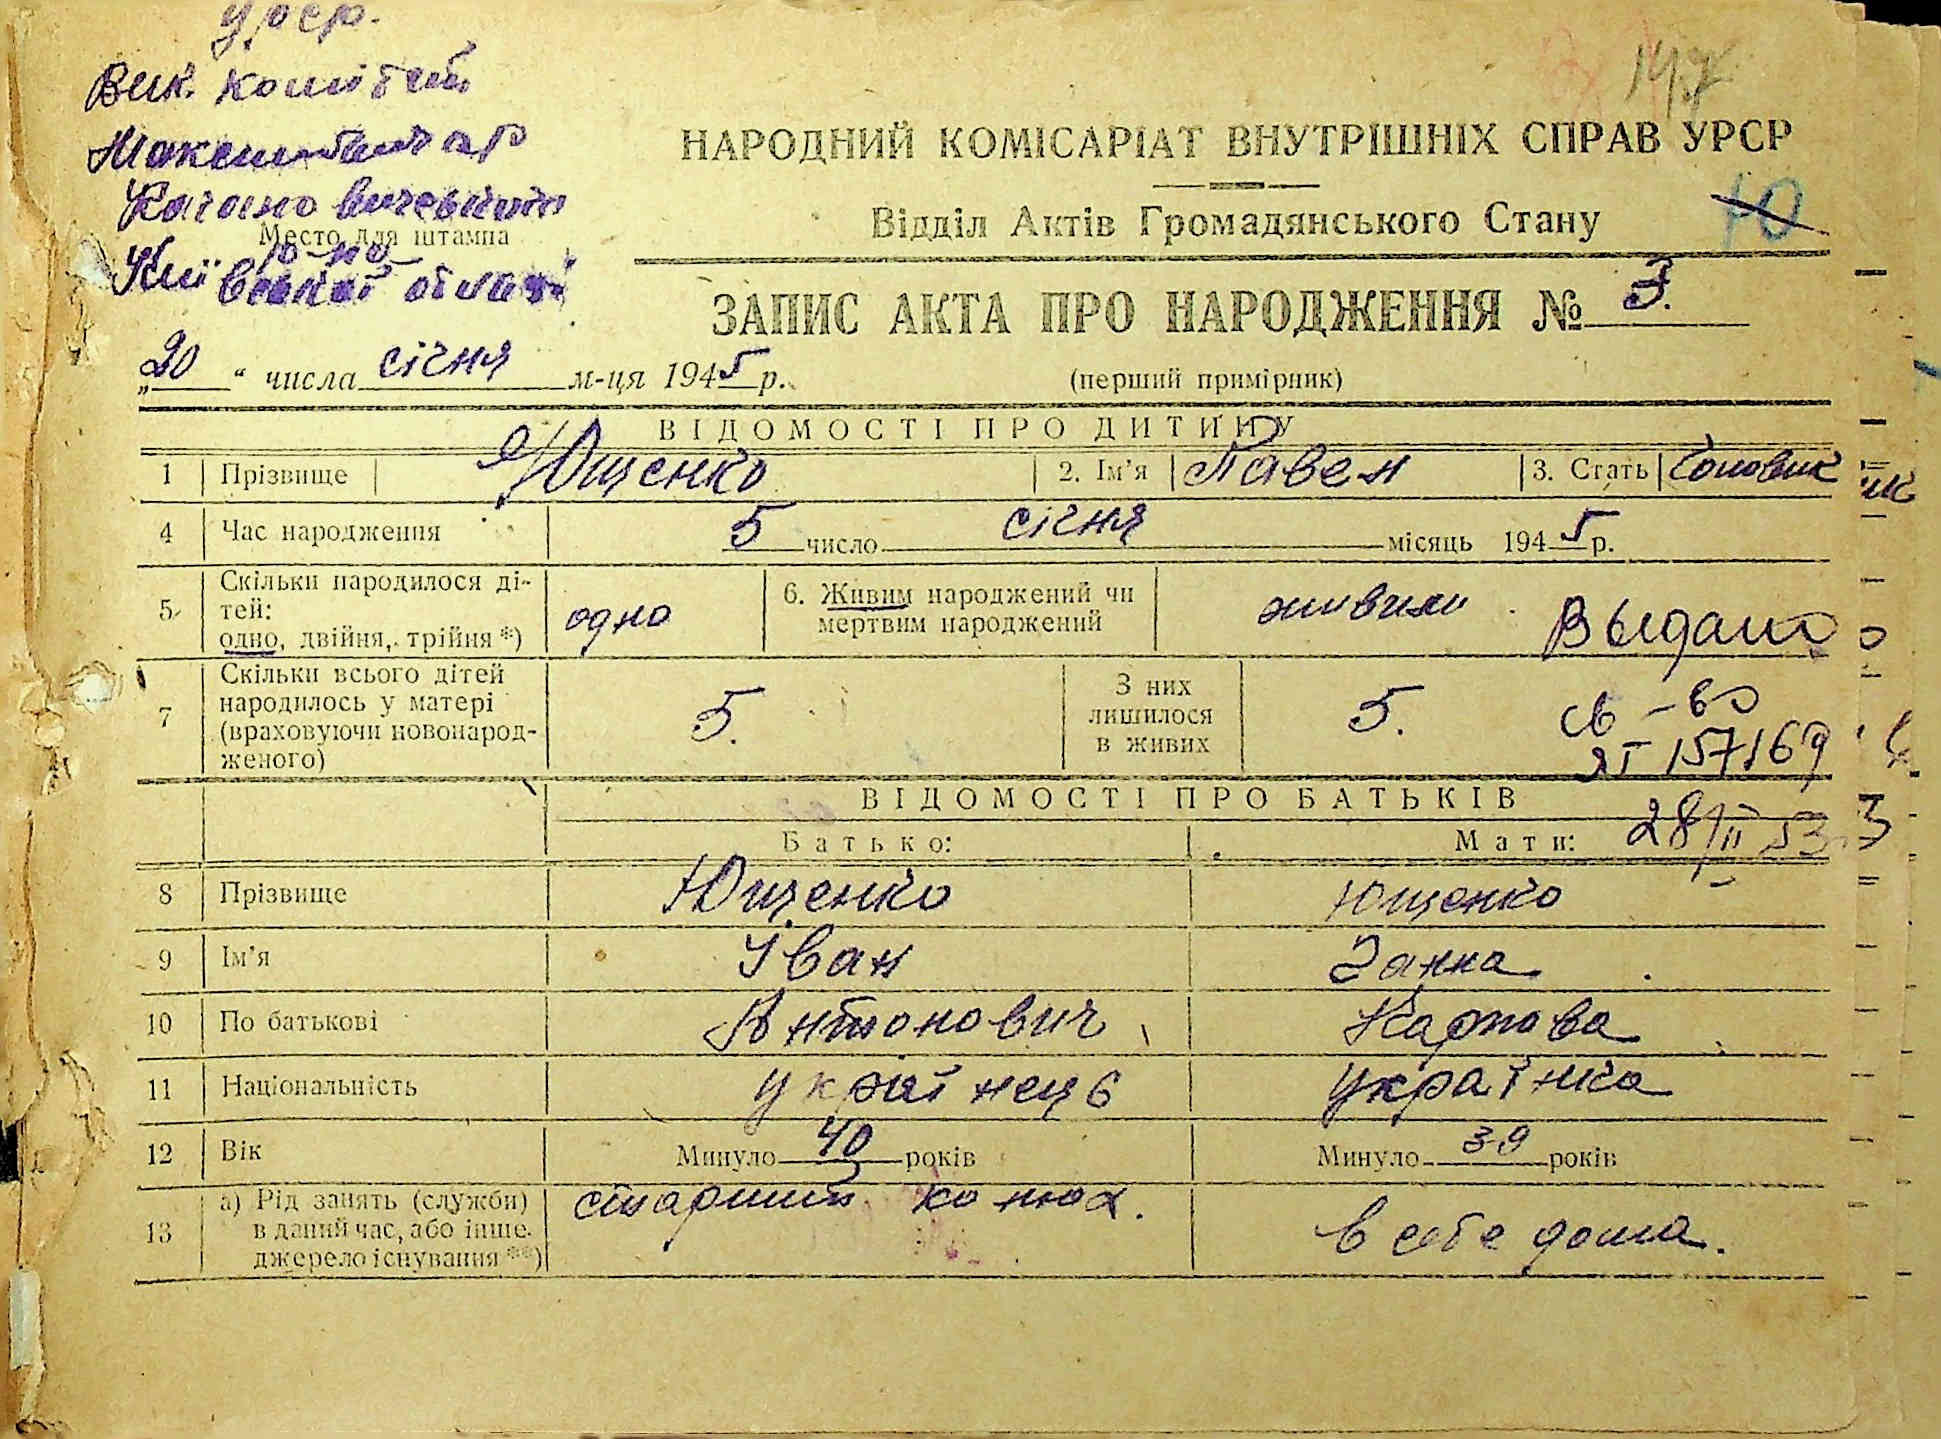 УРСР.
Вик. комітет
Кагановичевського
Место для штампа
р-но
Київської області
НАРОДНИЙ КОМІСАРІАТ ВНУТРІШНІХ СПРАВ УРСР
Відділ Актів Громадянського Стану
Ю
ЗАПИС АКТА ПРО НАРОДЖЕННЯ № 3.
„20“ числа січня м-ця 1945 р.
(перший примірник)
ВІДОМОСТІ ПРО ДИТИНУ
1 Прізвище Ющенко 2. Ім'я Павел 3. Стать Чоловик
4 Час народження 5 число січня місяць 1945 р.
5 Скільки народилося ді-
тей:
одно, двійня, трійня *) одно
6. Живим народжений чи
мертвим народжений живим
Выдано
7 Скільки всього дітей
народилось у матері
(враховуючи новонарод-
женого) 5.
З них
лишилося
в живих 5.
св-во
ЯТ 157169
28/II 53
ВІДОМОСТІ ПРО БАТЬКІВ
Батько: Мати:
8 Прізвище Ющенко Ющенко
9 Ім'я Іван Ганна
10 По батькові Антонович Карпова
11 Національність українець українка
12 Вік Минуло 40 років Минуло 39 років
13 а) Рід занять (служби)
в даний час, або інше
джерело існування **) старший конюх. в себе дома.